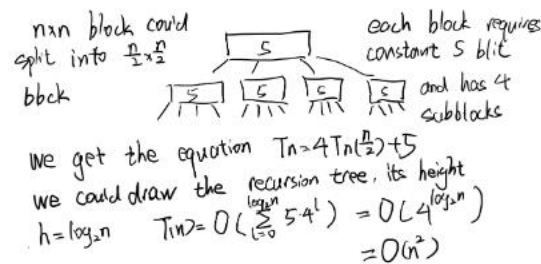 nxn block could
split into n/2 x n/2
block
5
5 5 5 5
each block requires
constant 5 blit
and has 4
subblocks
we get the equation Tn=4Tn(n/2)+5
we could draw the recursion tree, its height
h=log₂n T(n)=O(∑_{i=0}^{log₂n} 5·4^i) = O(4^{log₂n})
=O(n²)